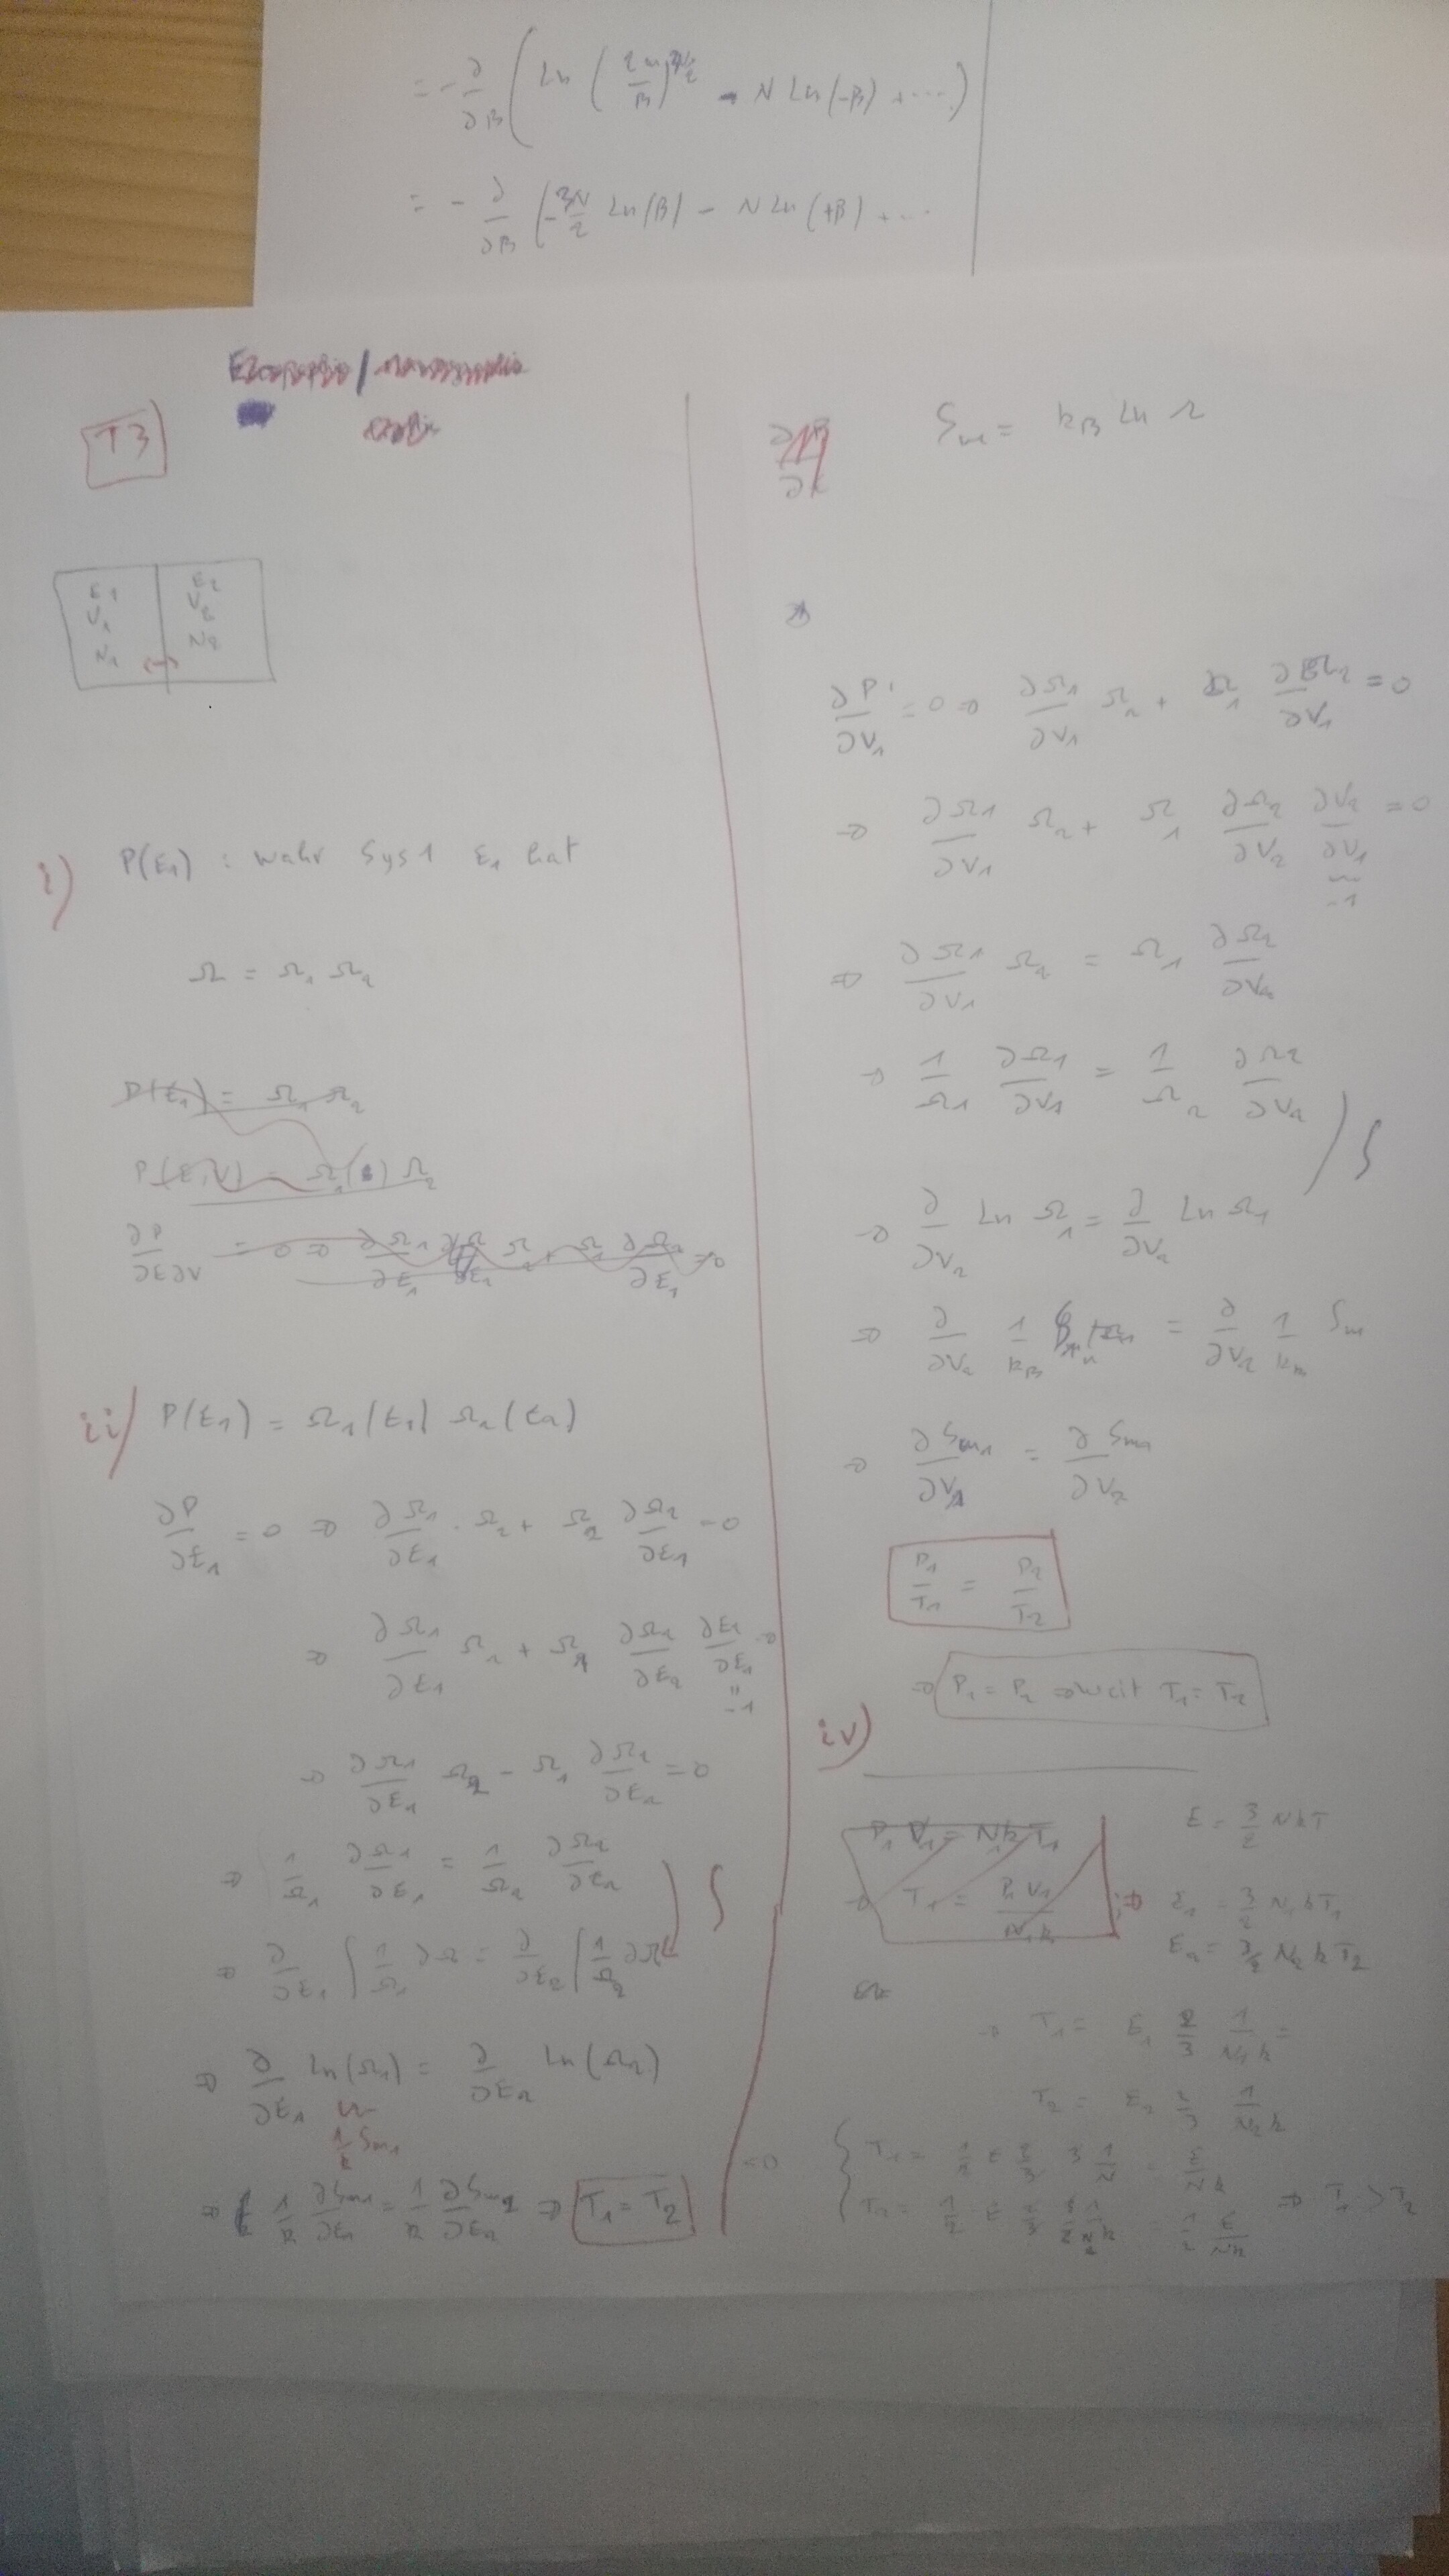 = - ∂/∂β ( ln (2m/β)^(3N/2) - N ln(-β) + .... )
= - ∂/∂β ( -3N/2 ln(β) - N ln(+β) + ...
T3
E1 E2
V1 V2
N1 N2
i) P(E1) : wahr Sys1 E1 hat
Ω = Ω1 Ω2
P(E1) = Ω1 Ω2
P(E,V) = Ω1( ) Ω2
∂P/∂E∂V = 0 ⇒
ii) P(E1) = Ω1(E1) Ω2(E2)
∂P/∂E1 = 0 ⇒ ∂Ω1/∂E1 · Ω2 + Ω2 ∂Ω2/∂E1 = 0
⇒ ∂Ω1/∂E1 Ω2 + Ω1 ∂Ω2/∂E2 ∂E2/∂E1 = 0
= -1
⇒ ∂Ω1/∂E1 Ω2 - Ω1 ∂Ω2/∂E2 = 0
⇒ 1/Ω1 ∂Ω1/∂E1 = 1/Ω2 ∂Ω2/∂E2 ) ∫
⇒ ∂/∂E1 ∫ 1/Ω1 ∂Ω = ∂/∂E2 ∫ 1/Ω2 ∂Ω
⇒ ∂/∂E1 ln(Ω1) = ∂/∂E2 ln(Ω2)
1/k Sm1
⇒ 1/k ∂Sm1/∂E1 = 1/k ∂Sm2/∂E2 ⇒ T1 = T2
Sm = kB ln Ω
∂P/∂V1 = 0 ⇒ ∂Ω1/∂V1 Ω2 + Ω1 ∂Ω2/∂V1 = 0
⇒ ∂Ω1/∂V1 Ω2 + Ω1 ∂Ω2/∂V2 ∂V2/∂V1 = 0
-1
⇒ ∂Ω1/∂V1 Ω2 = Ω1 ∂Ω2/∂V2
⇒ 1/Ω1 ∂Ω1/∂V1 = 1/Ω2 ∂Ω2/∂V2 ) ∫
⇒ ∂/∂V2 ln Ω1 = ∂/∂V2 ln Ω1
⇒ ∂/∂V2 1/kB = ∂/∂V2 1/km Sm
⇒ ∂Sm1/∂V1 = ∂Sm2/∂V2
P1/T1 = P2/T2
⇒ P1 = P2 ⇒ weil T1 = T2
iv)
P1 V1 = N1 k T1
⇒ T1 = P1 V1/N1 k
E = 3/2 NkT
⇒ E1 = 3/2 N1 k T1
E2 = 3/2 N2 k T2
⇒ T1 = E1 2/3 1/N1 k =
T2 = E2 2/3 1/N2 k
⇒ { T1 = 1/2 E 2/3 3 1/N = E/Nk
T2 = 1/2 E 2/3 3/2 1/N k = 1/2 E/Nk ⇒ T1 > T2